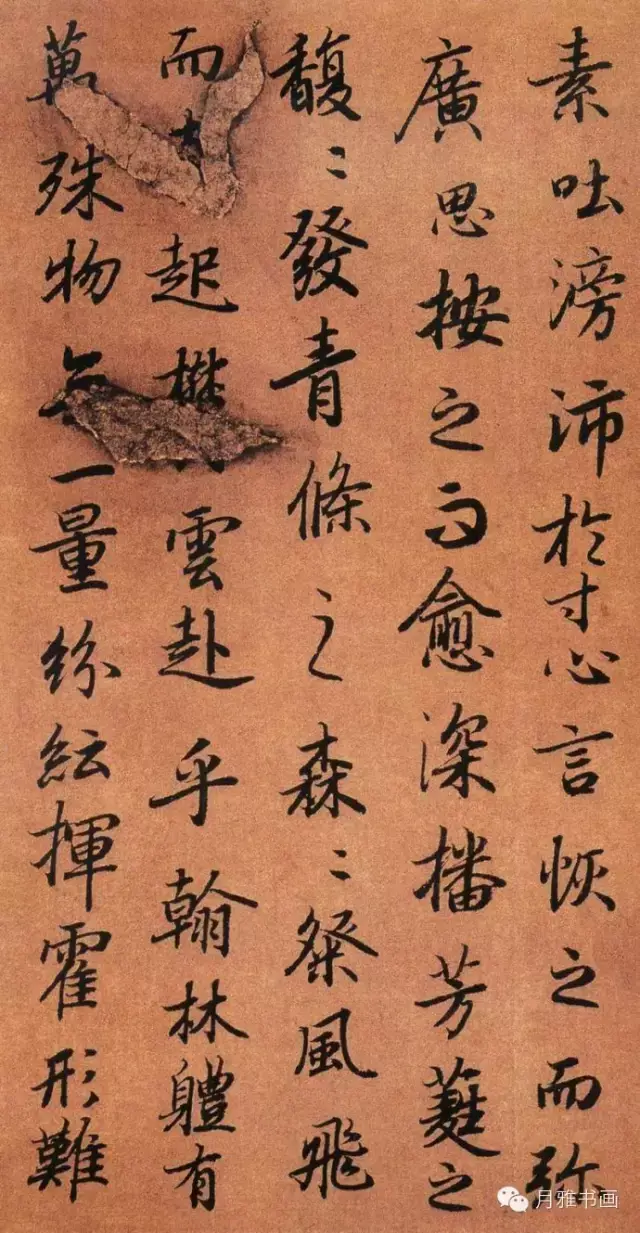 素吐滂沛於寸心言恢之而弥
廣思按之而愈深播芳蕤之
馥〻發青條之森〻粲風飛
而起雲赴乎翰林體有
萬殊物一量紛紜揮霍形難
月雅书画